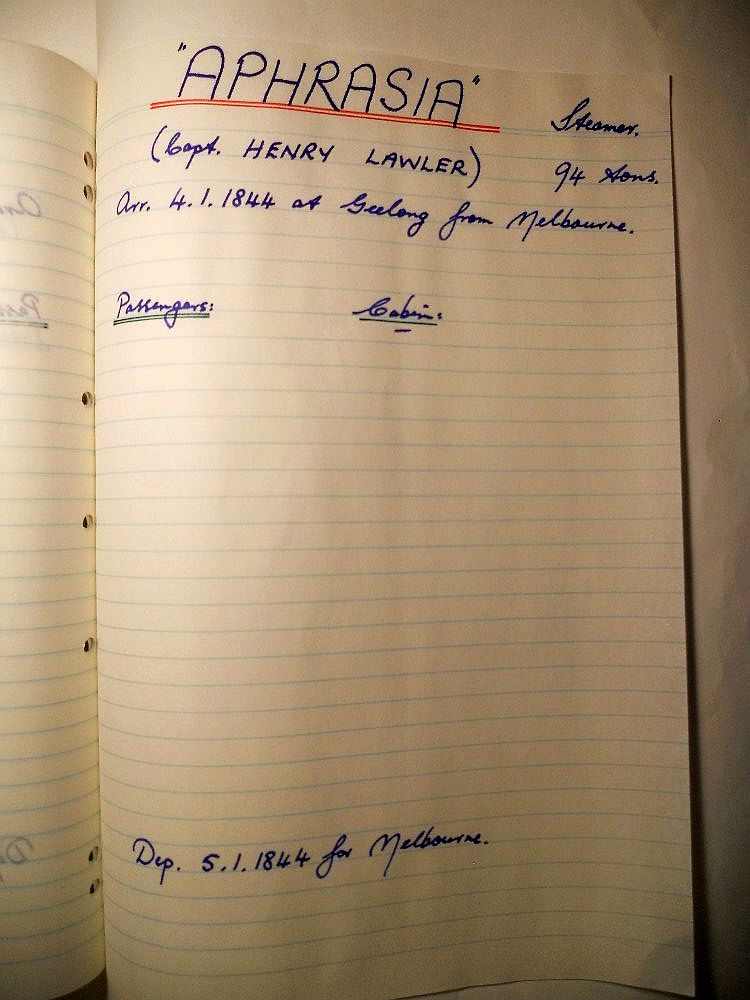 "APHRASIA"
Steamer.
(Capt. HENRY LAWLER)
94 tons.
Arr. 4.1.1844 at Geelong from Melbourne.
Passengers: Cabin:
Dep. 5.1.1844 for Melbourne.